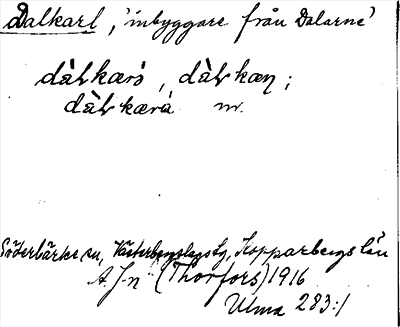 Dalkarl, 'inbyggare från Dalarne'
dàɫkærs, dàɫkæn;
dàɫkæra m.
Söderbärke sn, Västerbergslags dg, Kopparbergs län
A. J-n (Thorfors) 1916
Ulma 283:1